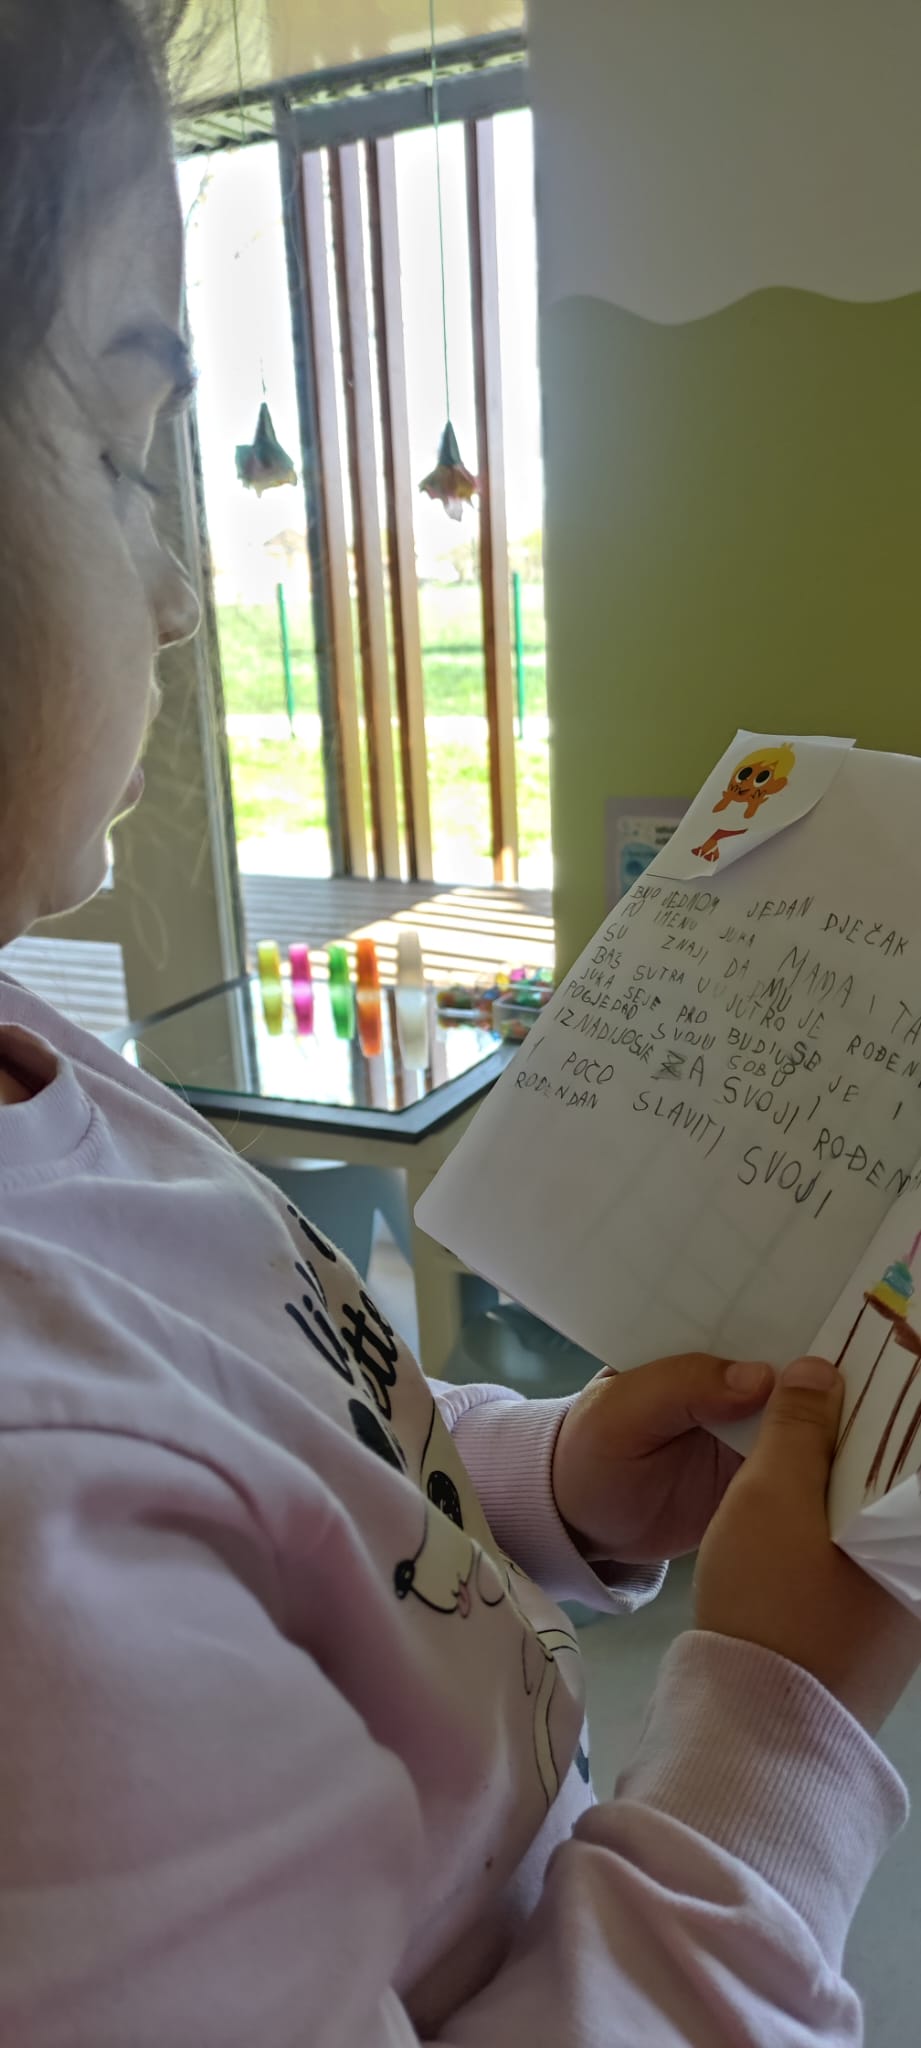 BIJO JEDNOM JEDAN DJEČAK
PO IMENU JUKA MAMA I TA
SU ZNAJI DA MU
BAŠ SUTRA U JUTRO JE ROĐEN
JUKA SEJE PRO BUDIJSE JE I
POGJEDAO SVOJU SOBU
IZNADIJOSJE ZA SVOJI ROĐEN
I POČO SLAVITI SVOJI
ROĐENDAN